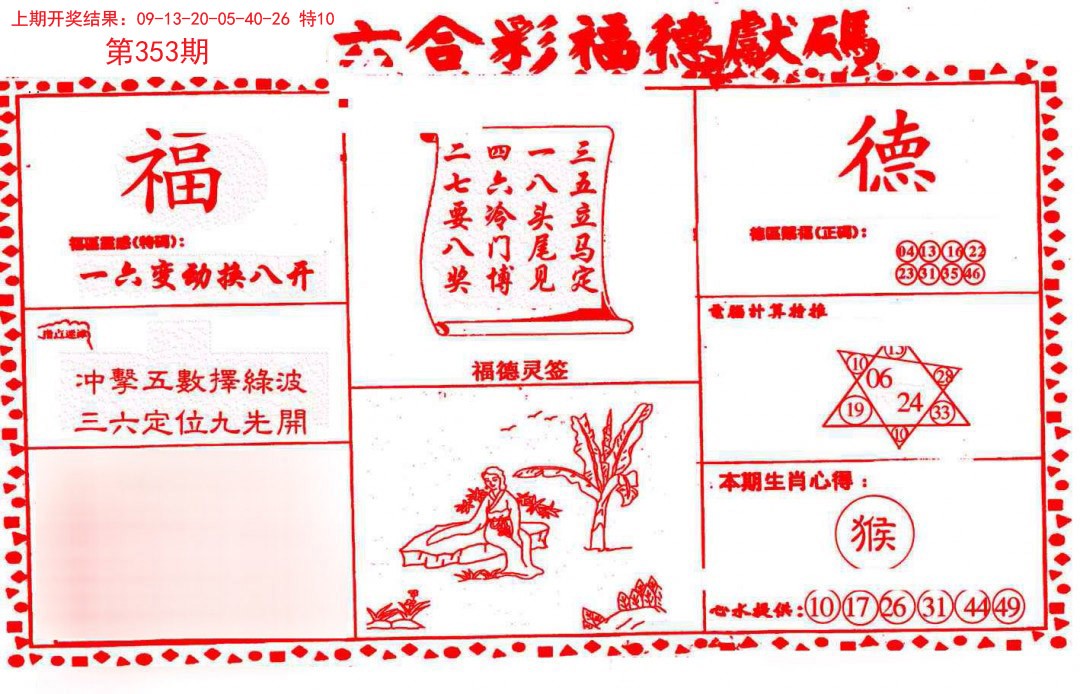 上期开奖结果：09-13-20-05-40-26 特10
第353期
六合彩福德獻碼
福
福區靈感(特碼)：
一六变动换八开
指点迷津
冲擊五數擇綠波
三六定位九先開
三五立马定
一八头尾见
四六冷门博
二七要八奖
福德灵签
德
德區賜福(正碼)：
04 13 16 22
23 31 35 46
電腦計算特推
10 13 28
06
19 24 33
10
本期生肖心得：
猴
心水提供：10 17 26 31 44 49